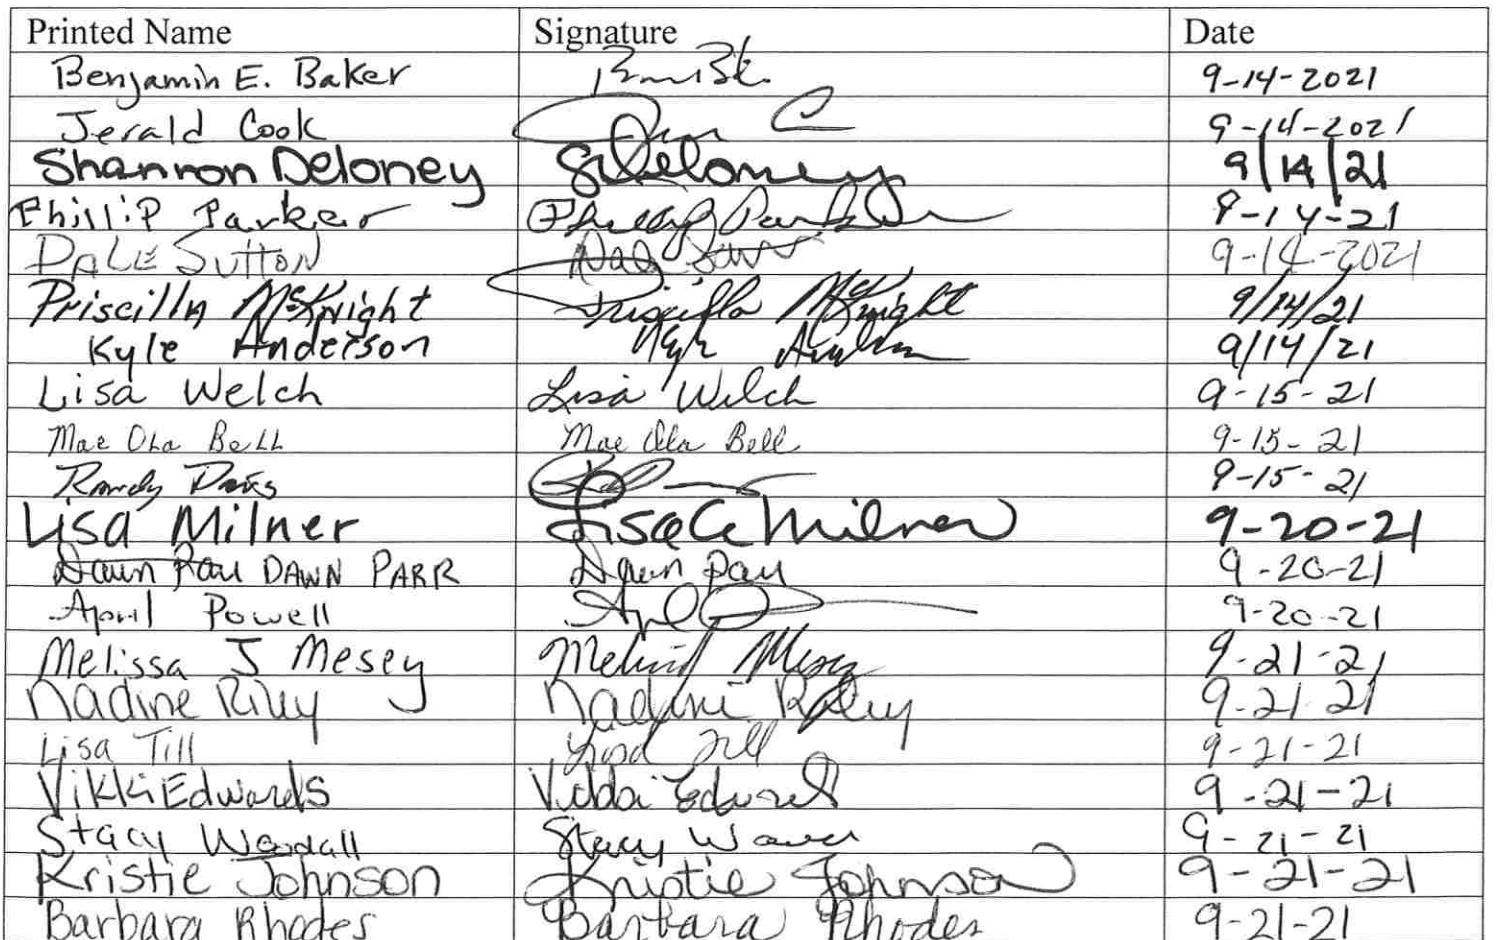 Printed Name Signature Date
Benjamin E. Baker 9-14-2021
Jerald Cook 9-14-2021
Shannon Deloney S. Deloney 9/14/21
Phillip Parker Phillip Parker 9-14-21
DALE SUTTON 9-14-2021
Priscilla McKnight Priscilla McKnight 9/14/21
Kyle Anderson Kyle 9/14/21
Lisa Welch Lisa Welch 9-15-21
Mae Ola Bell Mae Ola Bell 9-15-21
Randy Davis 9-15-21
Lisa Milner Lisa C Milner 9-20-21
Dawn Parr DAWN PARR Dawn Parr 9-20-21
April Powell 9-20-21
Melissa J Mesey 9-21-21
Nadine Riley Nadine Riley 9-21-21
Lisa Till Lisa Till 9-21-21
Vikki Edwards Edwards 9-21-21
Stacy Stacy 9-21-21
Kristie Johnson Kristie Johnson 9-21-21
Barbara Rhodes Barbara Rhodes 9-21-21